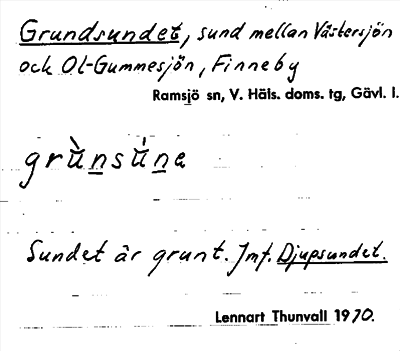 Grundsundet, sund mellan Västersjön
och Ol-Gummesjön, Finneby
Ramsjö sn, V. Häls. doms. tg, Gävl. l.
grùnsúne
Sundet är grunt. Jmf. Djupsundet.
Lennart Thunvall 1970.